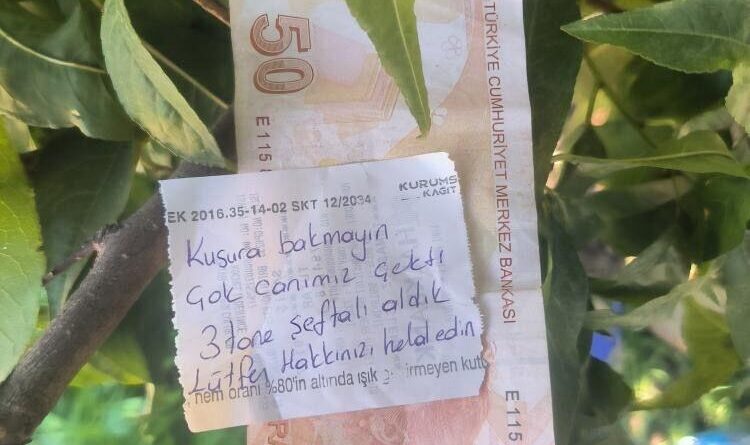 50
E 115
TÜRKİYE CUMHURİYET MERKEZ BANKASI
E 115
KURUMS
KAGIT
EK 2016.35-14-02 SKT 12/2034
Kusura bakmayın
Çok canımız çekti
3 tane şeftali aldık
Lütfen Hakkınızı helal edin
nem oranı %80'in altında ışık
irmeyen kutu